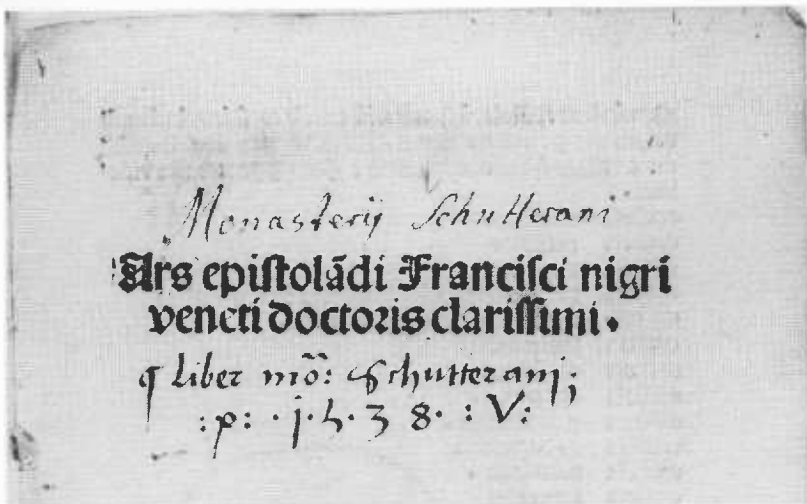 Monasterij Schutterani
Ars epistolādi Francisci nigri
veneti doctoris clarissimi.
¶ Liber mō: Schutteranj;
:p: ·j·5·3 8· : V: